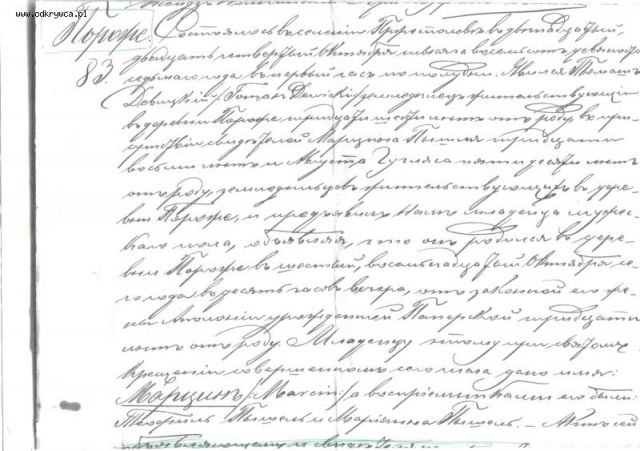 www.odkrywca.pl
Пороже.
83.
Состоялось въ селеніи въ двѣнадцатый,
двадцать четвертый Октября тысяча восемьсотъ девяносто
седьмаго года въ первый часъ по полудни. Явился Томашъ
Девицкій /Tomasz Dewicki/ земледѣлецъ жительствующій
въ деревни Пороже тридцати шести лѣтъ отъ роду въ при-
сутствіи свидѣтелей Марцина тридцати
восьми лѣтъ и пятидесяти лѣтъ
отъ роду, земледѣльцевъ жительствующихъ въ дере-
вни Пороже, и предъявилъ Намъ младенца муже-
скаго пола, объявляя, что онъ родился въ дере-
вни Пороже въ шестый, восемнадцатый Октября се-
го года въ десять часовъ вечера, отъ законной его же-
ны Антонины урожденной тридцати
лѣтъ отъ роду. Младенцу этому при святомъ
крещеніи совершенномъ сего числа дано имя:
Марцинъ /:Marcin:/ а воспріемниками его были:
Теофиль и Маріянна — Актъ сей
объявляющему и